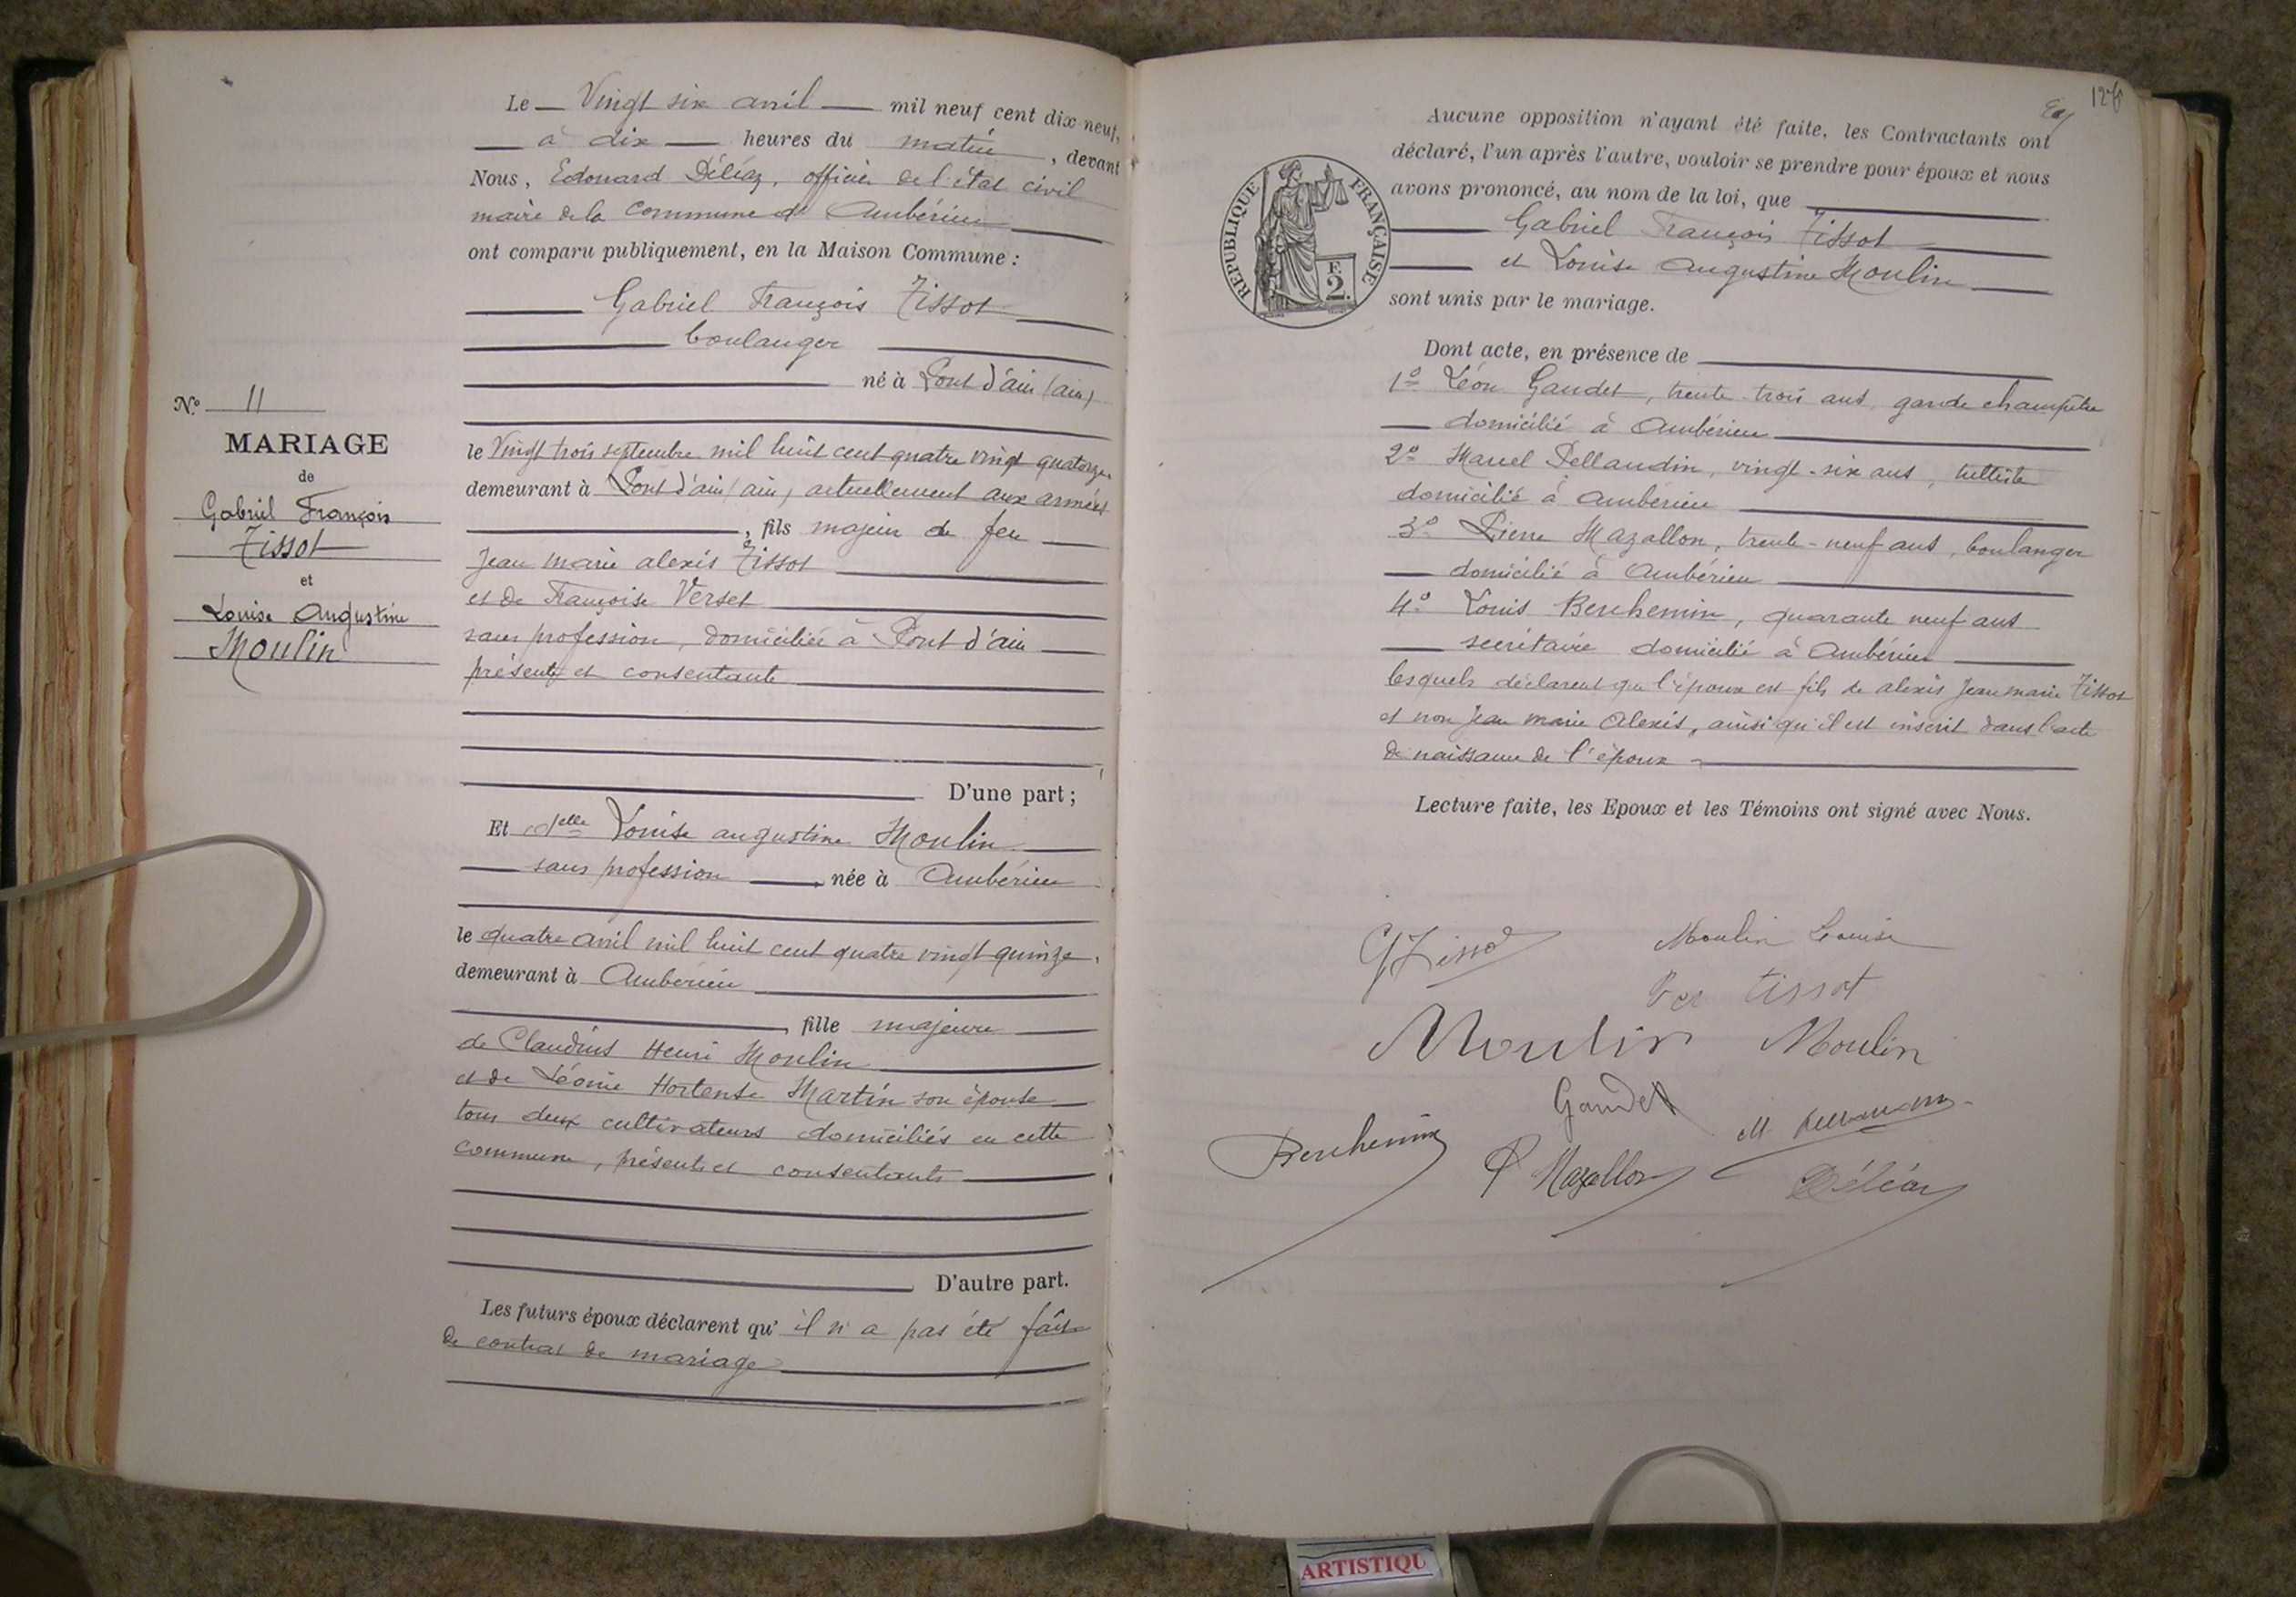 N.º 11
MARIAGE
de
Gabriel François
Tissot
et
Louise Augustine
Moulin
Le Vingt six avril mil neuf cent dix-neuf,
à dix heures du matin, devant
Nous, Edouard Déléaz, officier de l'état civil
maire de la Commune d' Ambérieu
ont comparu publiquement, en la Maison Commune :
Gabriel François Tissot
boulanger
né à Pont d'ain (ain)
le Vingt trois septembre mil huit cent quatre vingt quatorze
demeurant à Pont d'ain (ain) actuellement aux armées
, fils majeur de feu
Jean marie alexis Tissot
et de Françoise Verset
sans profession, domiciliée à Pont d'ain
présente et consentante
D'une part ;
Et delle Louise augustine Moulin
sans profession, née à Ambérieu
le quatre avril mil huit cent quatre vingt quinze,
demeurant à Ambérieu
, fille majeure
de Claudius Henri Moulin
et de Léonie Hortense Martin son épouse
tous deux cultivateurs domiciliés en cette
commune, présents et consentants
D'autre part.
Les futurs époux déclarent qu' il n'a pas été fait
de contrat de mariage
126
Aucune opposition n'ayant été faite, les Contractants ont
déclaré, l'un après l'autre, vouloir se prendre pour époux et nous
avons prononcé, au nom de la loi, que
Gabriel François Tissot
et Louise Augustine Moulin
sont unis par le mariage.
RÉPUBLIQUE FRANÇAISE
F
2.
Dont acte, en présence de
1º Léon Gaudet, trente-trois ans, garde champêtre
domicilié à Ambérieu
2º Marcel Pellaudin, vingt-six ans, tulliste
domicilié à Ambérieu
3º Pierre Mazallon, trente-neuf ans, boulanger
domicilié à Ambérieu
4º Louis Berchemin, quarante neuf ans
secrétaire domicilié à Ambérieu
lesquels déclarent que l'époux est fils de alexis Jean marie Tissot
et non Jean marie Alexis, ainsi qu'il est inscrit dans l'acte
de naissance de l'époux
Lecture faite, les Epoux et les Témoins ont signé avec Nous.
G Tissot
Moulin Louise
tissot
Moulin Moulin
Gaudet
Berchemin
P Mazallon
Déléaz
ARTISTIQU